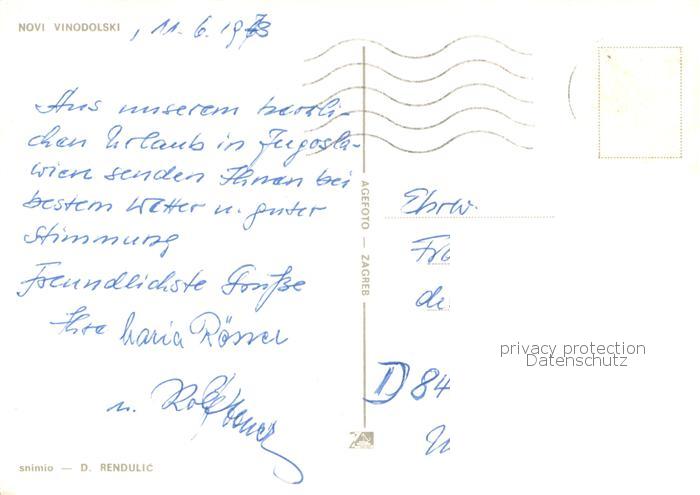 NOVI VINODOLSKI , 11.6.1973
Aus unserem herrli-
chen Urlaub in Jugosla-
wien senden Ihnen bei
bestem Wetter u. guter
Stimmung
Freundlichste Grüße
Ihre Maria Rösner
u. Rolf
AGEFOTO — ZAGREB
Ehrw.
Fr
de
privacy protection
Datenschutz
D 84
snimio — D. RENDULIC